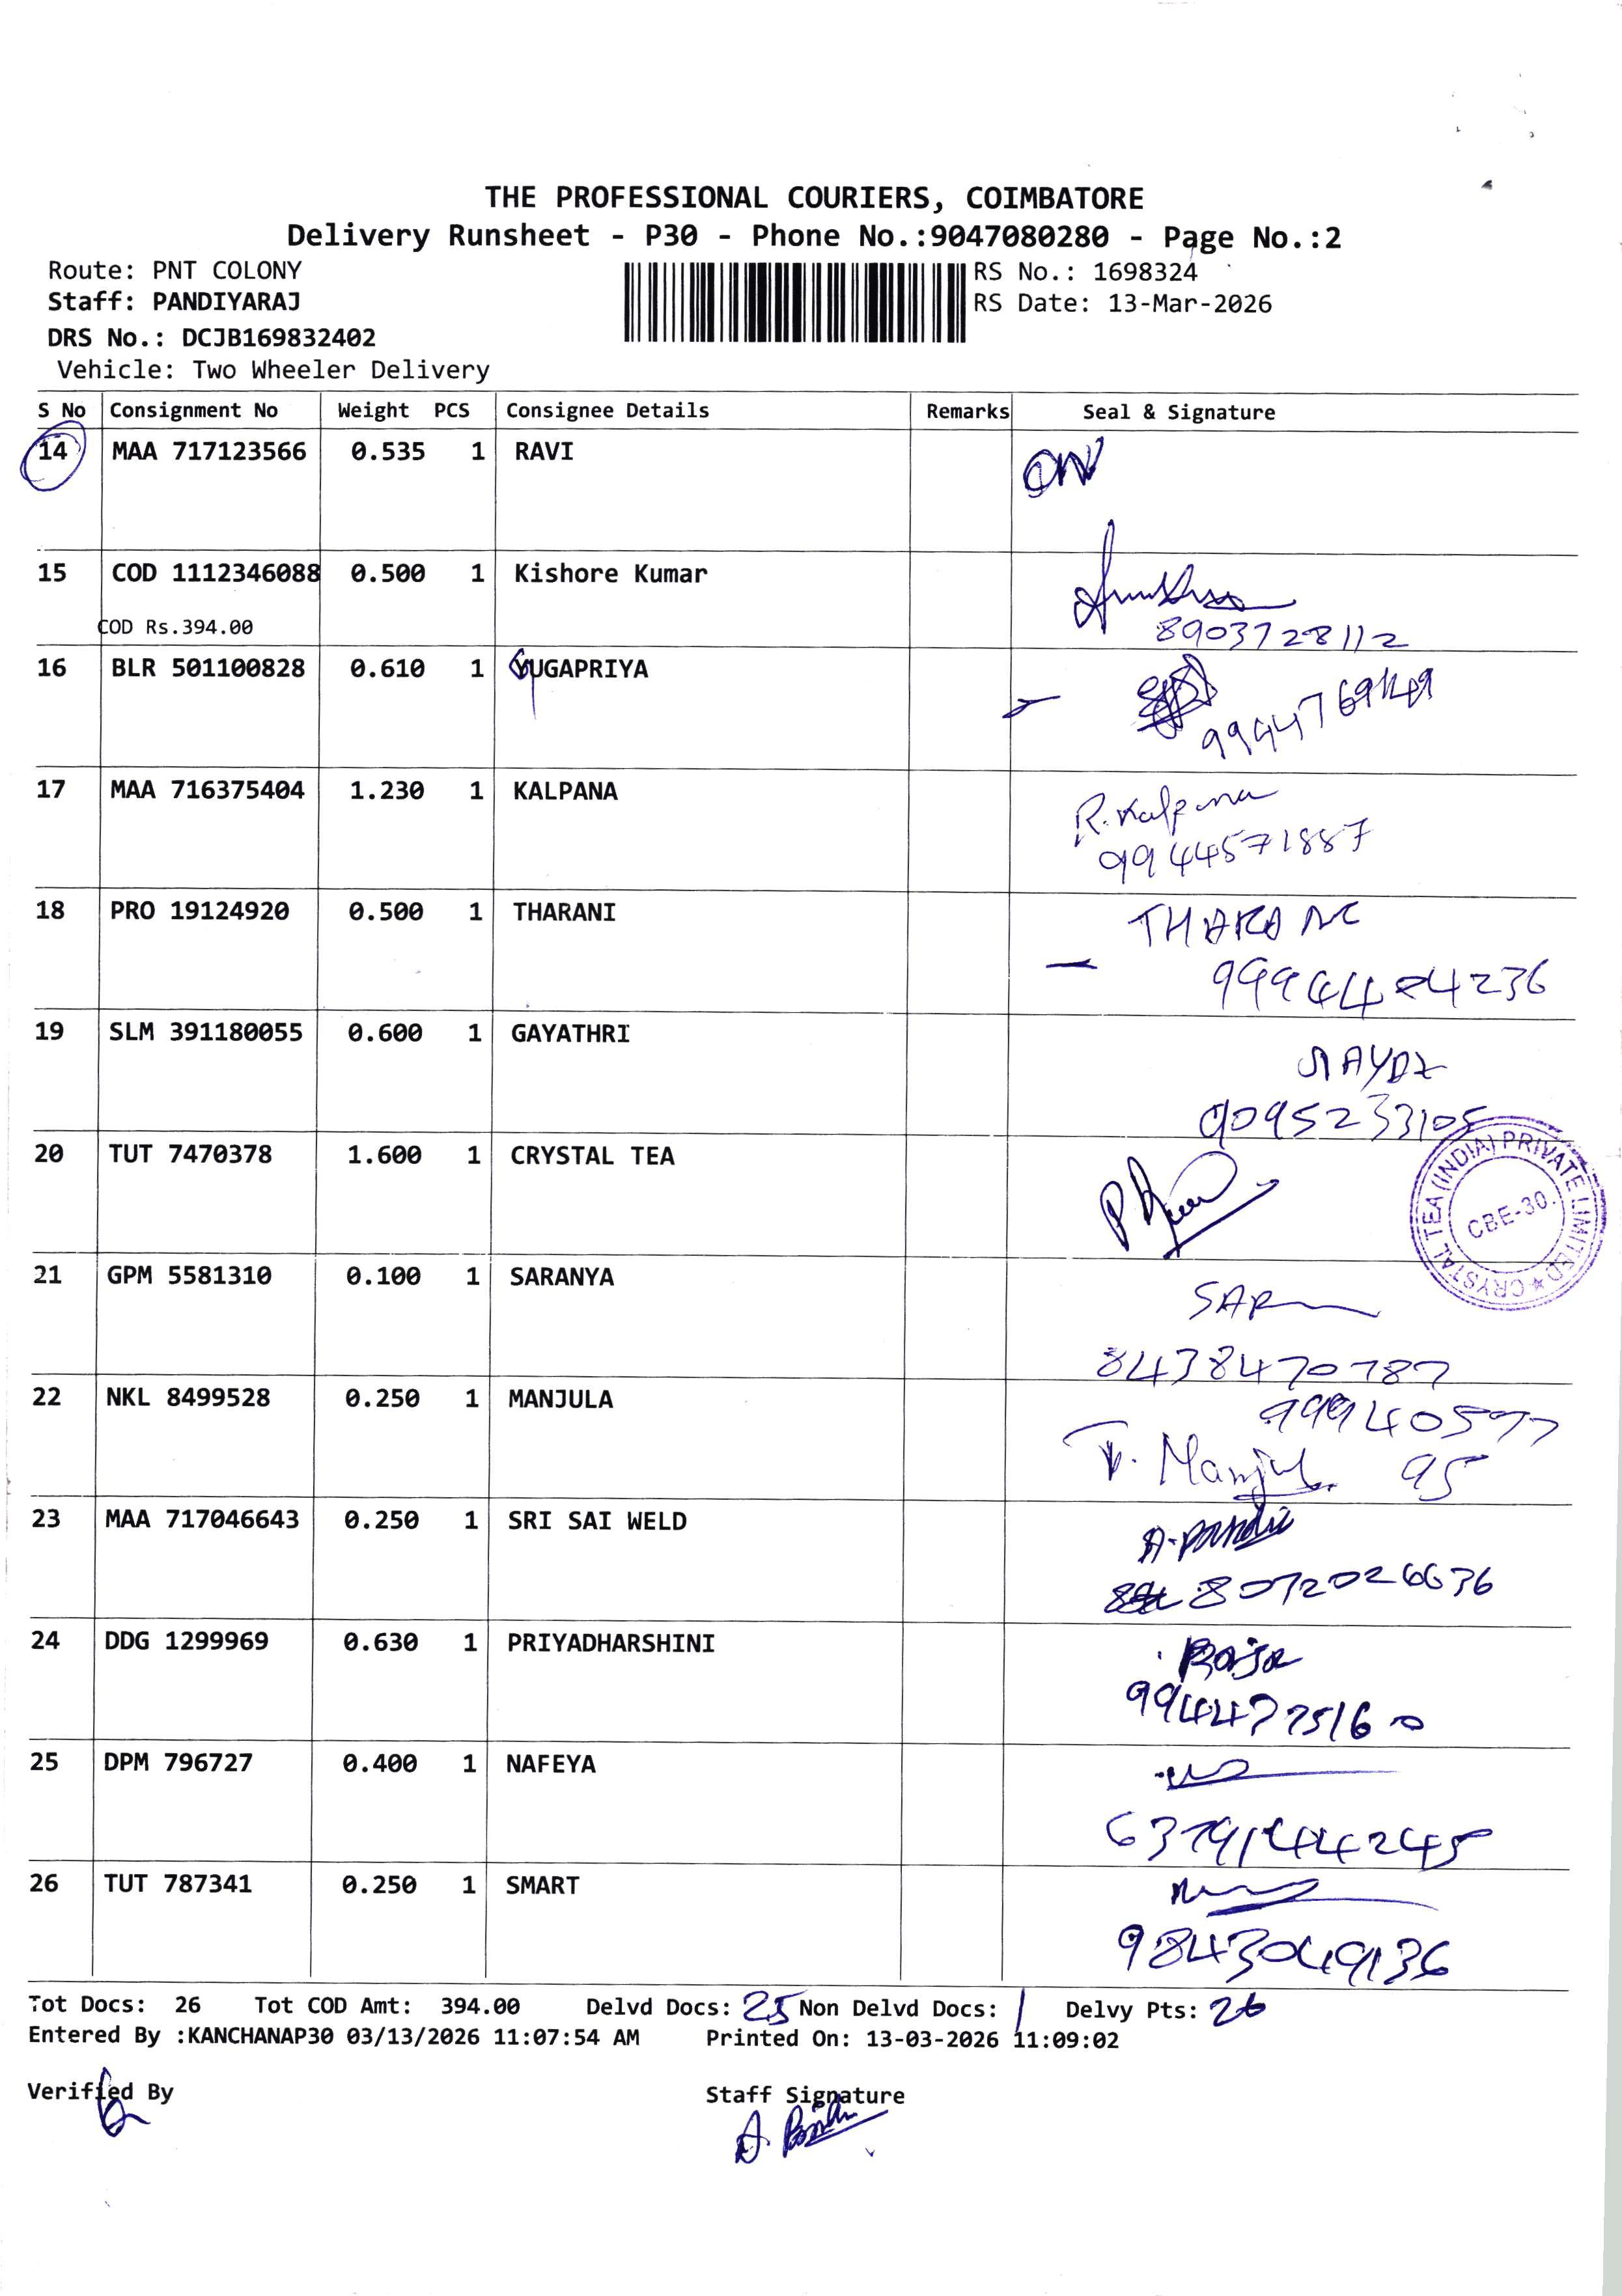 THE PROFESSIONAL COURIERS, COIMBATORE
Delivery Runsheet - P30 - Phone No.:9047080280 - Page No.:2
Route: PNT COLONY
RS No.: 1698324
Staff: PANDIYARAJ
RS Date: 13-Mar-2026
DRS No.: DCJB169832402
Vehicle: Two Wheeler Delivery
S No Consignment No Weight PCS Consignee Details Remarks Seal & Signature
14 MAA 717123566 0.535 1 RAVI
15 COD 1112346088 0.500 1 Kishore Kumar
COD Rs.394.00
8903728112
16 BLR 501100828 0.610 1 YUGAPRIYA
17 MAA 716375404 1.230 1 KALPANA
R. Kalpana
9944571887
18 PRO 19124920 0.500 1 THARANI
THARANI
19 SLM 391180055 0.600 1 GAYATHRI
9095233105
20 TUT 7470378 1.600 1 CRYSTAL TEA
CRYSTAL TEA (INDIA) PRIVATE LIMITED ★
CBE-30.
21 GPM 5581310 0.100 1 SARANYA
SAR
8438470787
22 NKL 8499528 0.250 1 MANJULA
999405977
95
23 MAA 717046643 0.250 1 SRI SAI WELD
8072026636
24 DDG 1299969 0.630 1 PRIYADHARSHINI
Raja
25 DPM 796727 0.400 1 NAFEYA
26 TUT 787341 0.250 1 SMART
9843049136
Tot Docs: 26 Tot COD Amt: 394.00 Delvd Docs: 25 Non Delvd Docs: 1 Delvy Pts: 26
Entered By :KANCHANAP30 03/13/2026 11:07:54 AM Printed On: 13-03-2026 11:09:02
Verified By Staff Signature